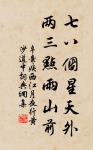 七八個星天外
兩三點雨山前
辛棄疾西江月夜行黃
沙道中詞典網集